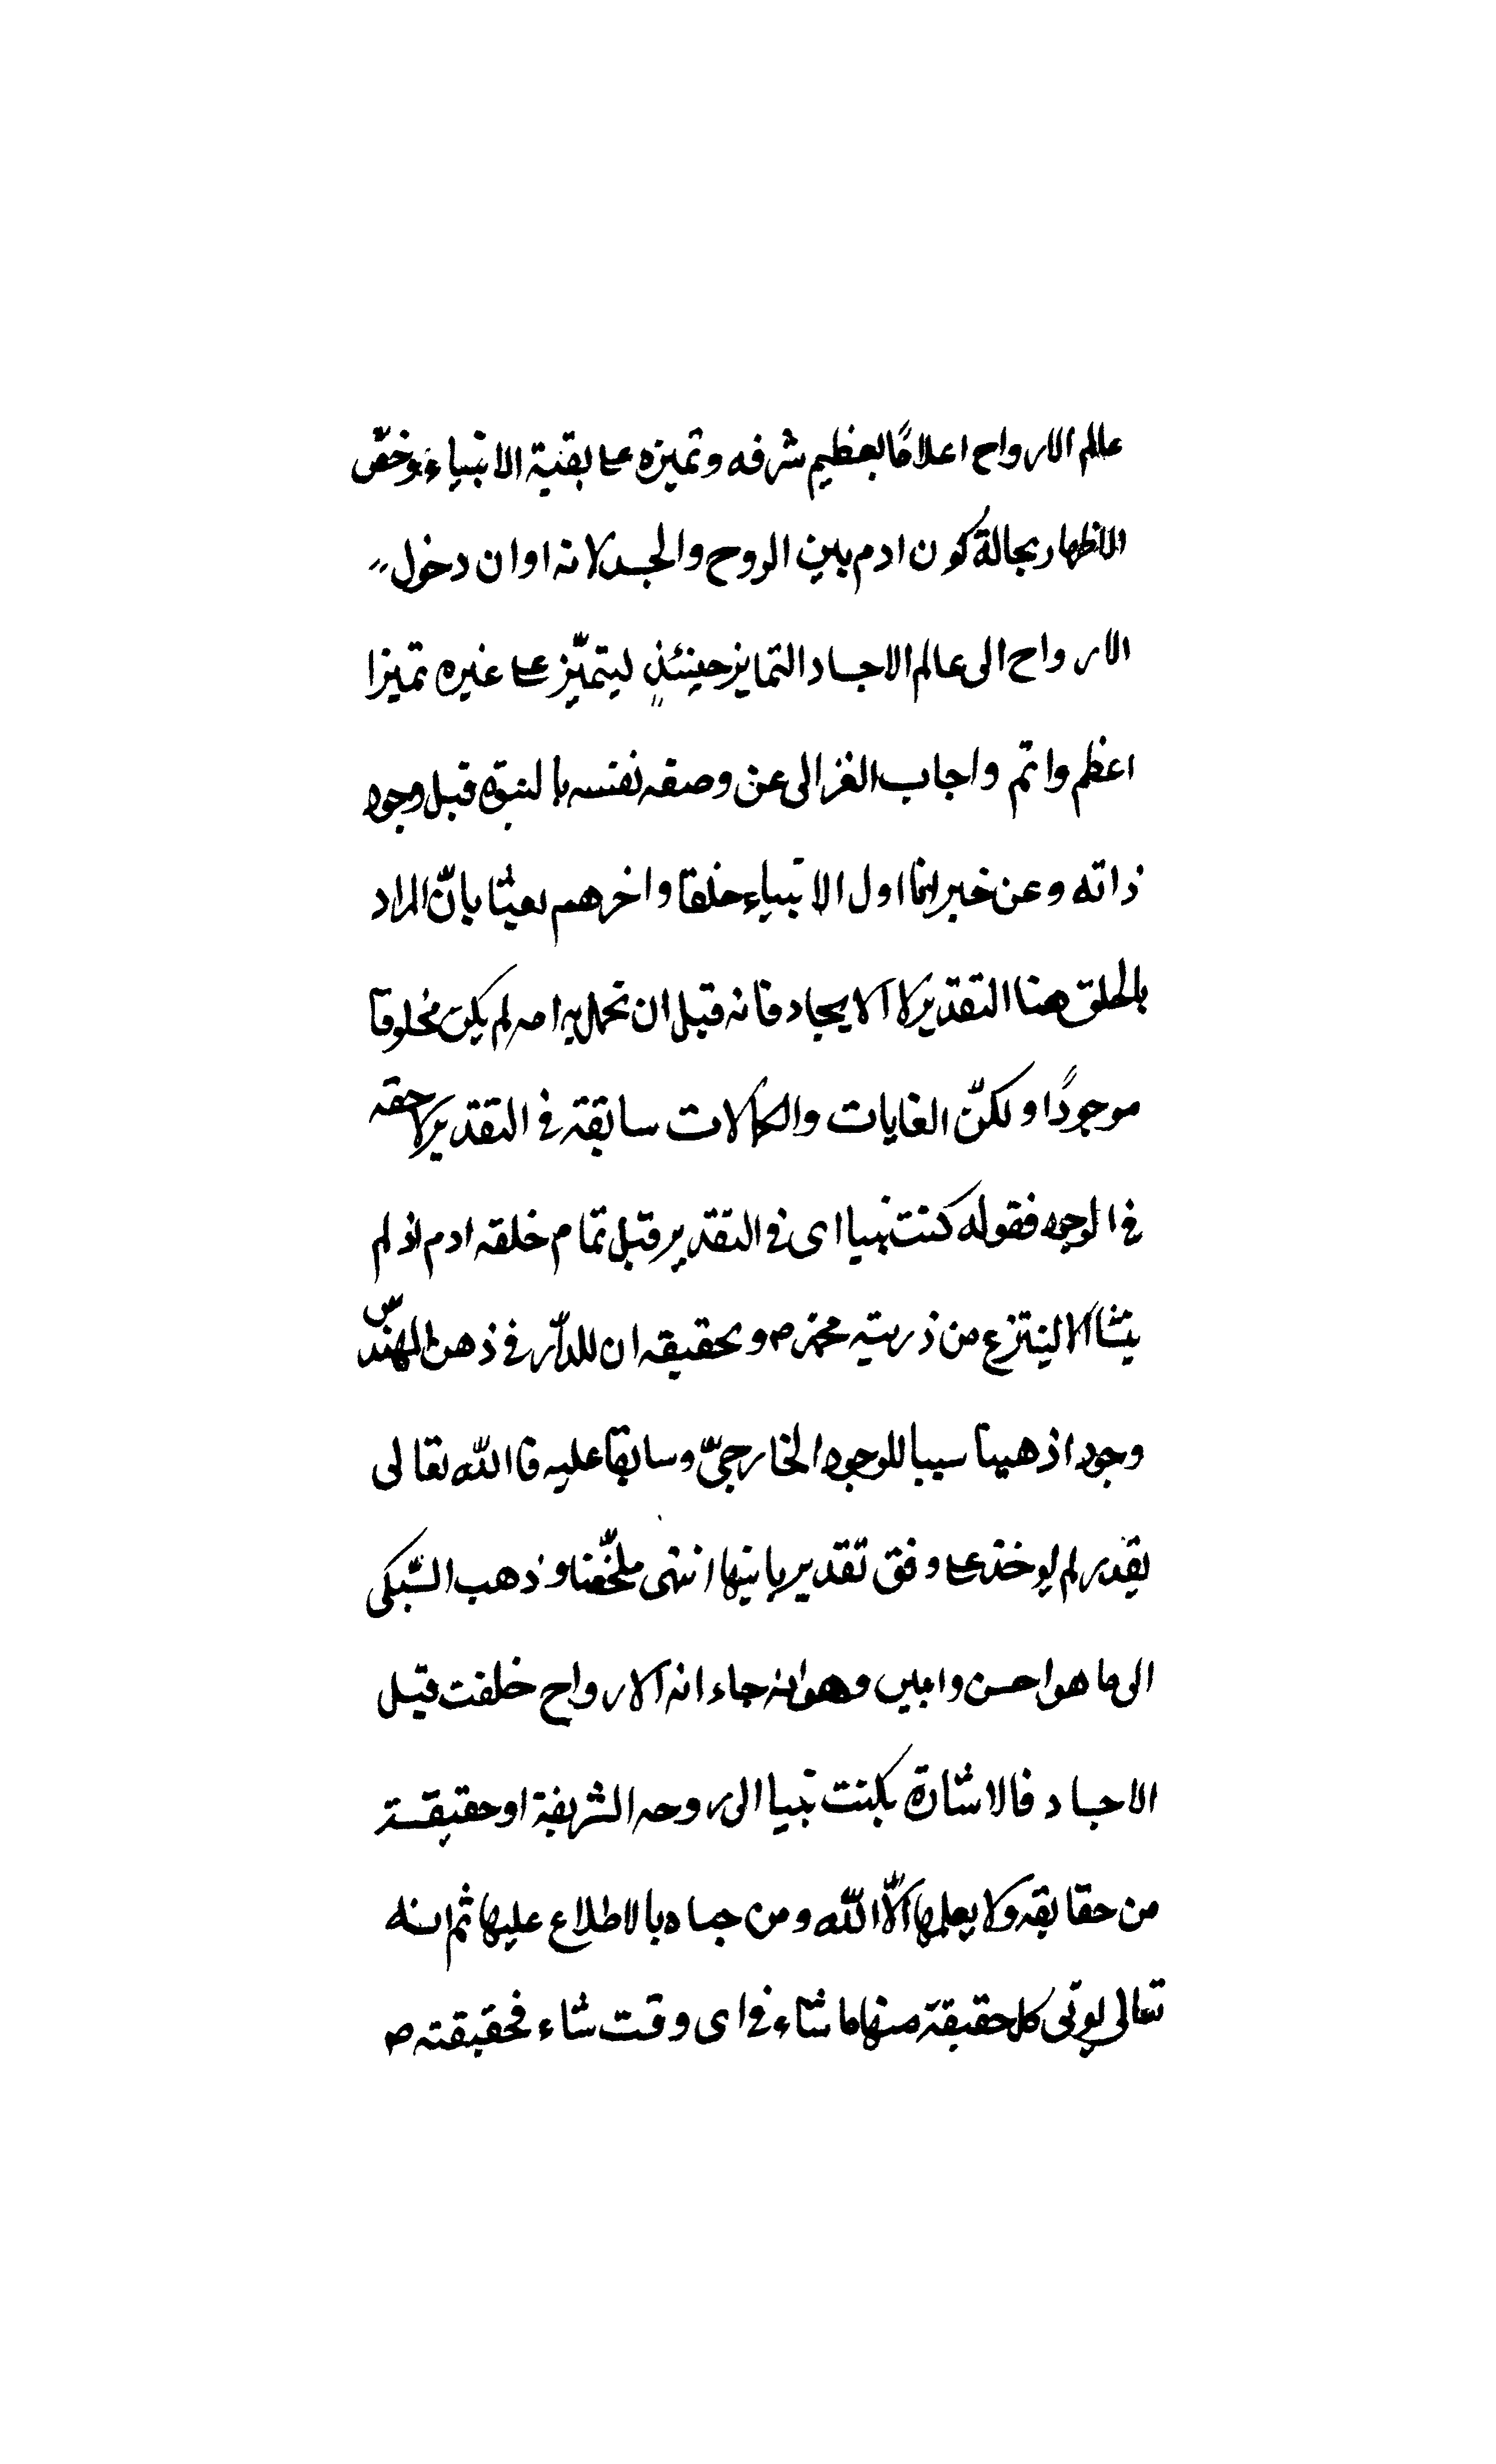 عالم الارواح اعلامًا بعظيم شرفه وتميزه على بقية الانبياء وخصّ
الاظهار بحالة كون ادم بين الروح والجسد لانه اوان دخول
الارواح الى عالم الاجساد التمايز حينئذٍ ليتميّز على غيره تميزا
اعظم واتم واجاب الغزالى عن وصفه نفسه بالنبوة قبل وجود
ذاته وعن خبر انما اول الانبياء خلقا واخرهم بعثا بانّ المراد
بالخلق هنا التقدير لا الايجاد فانه قبل ان تحمل به امه لم يكن مخلوقا
موجودًا ولكنّ الغايات والكمالات سابقة فى التقدير لاحقه
فى الوجود فقوله كنت نبيا اى فى التقدير قبل تمام خلقه ادم اذ لم
ينشا الا لينتزع من ذريته محمد ص وتحقيقه ان للدّار فى ذهن المهندّس
وجودا ذهنيا سببا للوجود الخارجىّ وسابقا عليه فاالله تعالى
يقدر ثم يوخذ على وفق تقدير بانيها انتهى ملخّصا وذهب السّبكى
الى ما هو احسن وابين وهو انه جاء انه الارواح خلقت قبل
الاجساد فالاشارة بكنت نبيا الى روحه الشريفة او حقيقة
من حقايقه ولا يعلمها الّا الله ومن حباه بالاطلاع عليها ثم انه
تعالى يوتى كل حقيقة منها ما شاء فى اى وقت شاء فحقيقته ص